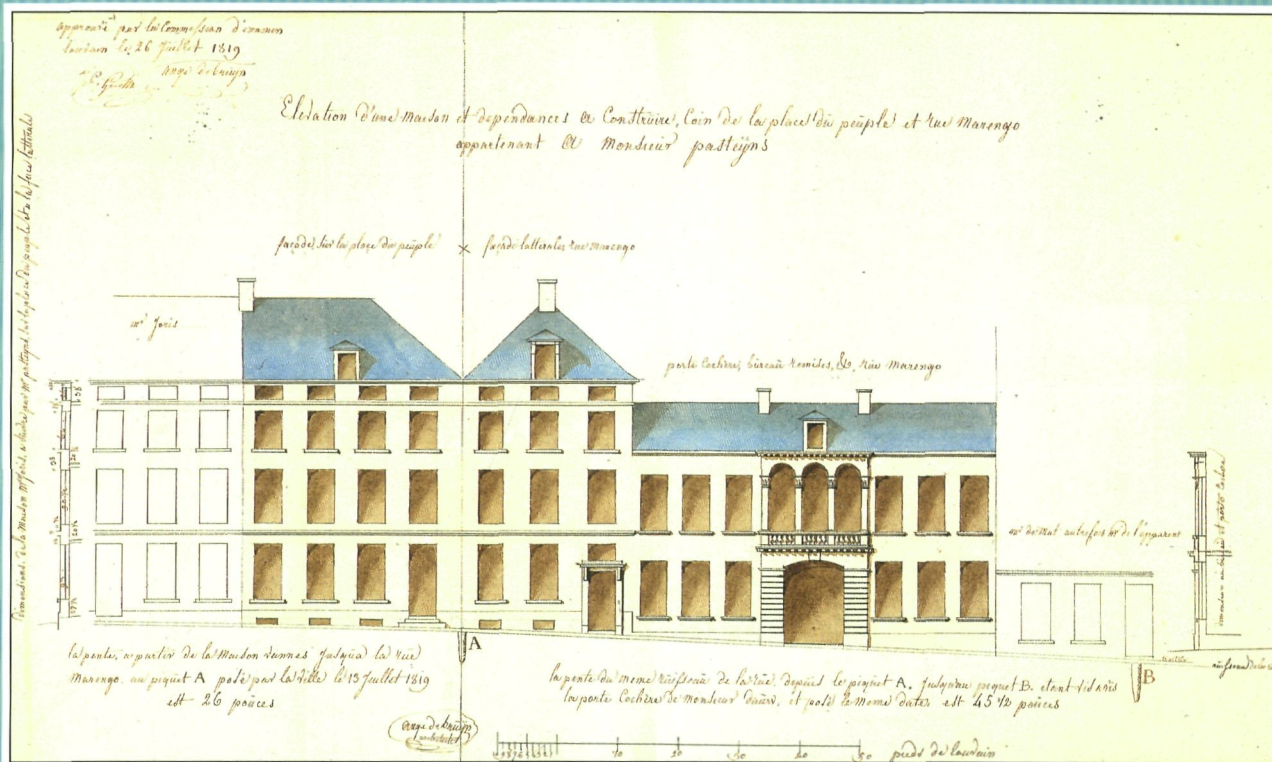 approuvé par la Commission d'examen
louvain le 26 Juillet 1819
ange debruyn
Elevation d'une maison et dependances a Construire, Coin de la place du peuple et rue Marengo
appartenant a Monsieur pasteyns
façade sur la place du peuple × façade lattéralle rue marengo
mr Joris
porte Cochere, bureau remises, &. rue Marengo
mr de mat autrefois mr de l'epparent
la pente, a partir de la Maison vannes jusqu'a la rue
Marengo. au piquet A posé par la ville le 13 Juillet 1819
est 26 pouces
A
la pente du meme ruisseau de la rue, depuis le piquet A. Jusqu'au piquet B. etant vis avis
la porte Cochère de Monsieur et posé le meme date, est 45 1/2 pouces
B
ange debruyn
architecte
10 20 30 40 50 pieds de louvain